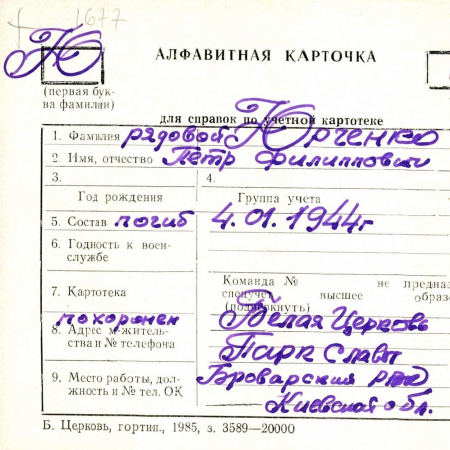 1677
Ю
АЛФАВИТНАЯ КАРТОЧКА
(первая бук-
ва фамилии)
для справок по учетной картотеке
1. Фамилия рядовой Юрченко
2. Имя, отчество Петр Филиппович
3. 4.
Год рождения Группа учета
5. Состав погиб 4.01.1944г
6. Годность к воен-
службе
Команда № не предназ
7. Картотека спецучет высшее образо
похоронен (подчеркнуть) Белая Церковь
8. Адрес м жительства и № телефона Парк Славы
9. Место работы, дол- Броварский
жность и № тел. ОК Киевской обл.
Б. Церковь, гортип., 1985, з. 3589—20000